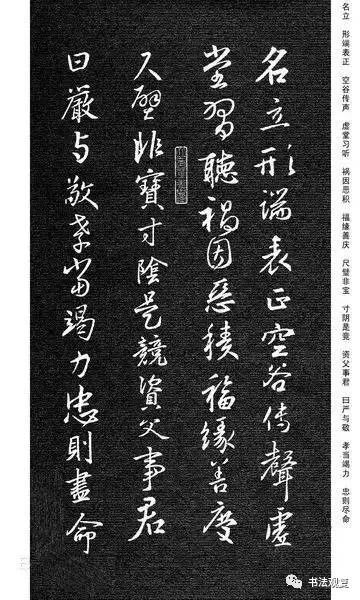 名立 形端表正 空谷传声 虚堂习听 祸因恶积 福缘善庆 尺璧非宝 寸阴是竞 资父事君 曰严与敬 孝当竭力 忠则尽命
名立形端表正空谷传聲虚
堂習聽禍因惡積福緣善慶
尺璧非寶寸陰是競資父事君
曰嚴与敬孝當竭力忠則盡命
书法观